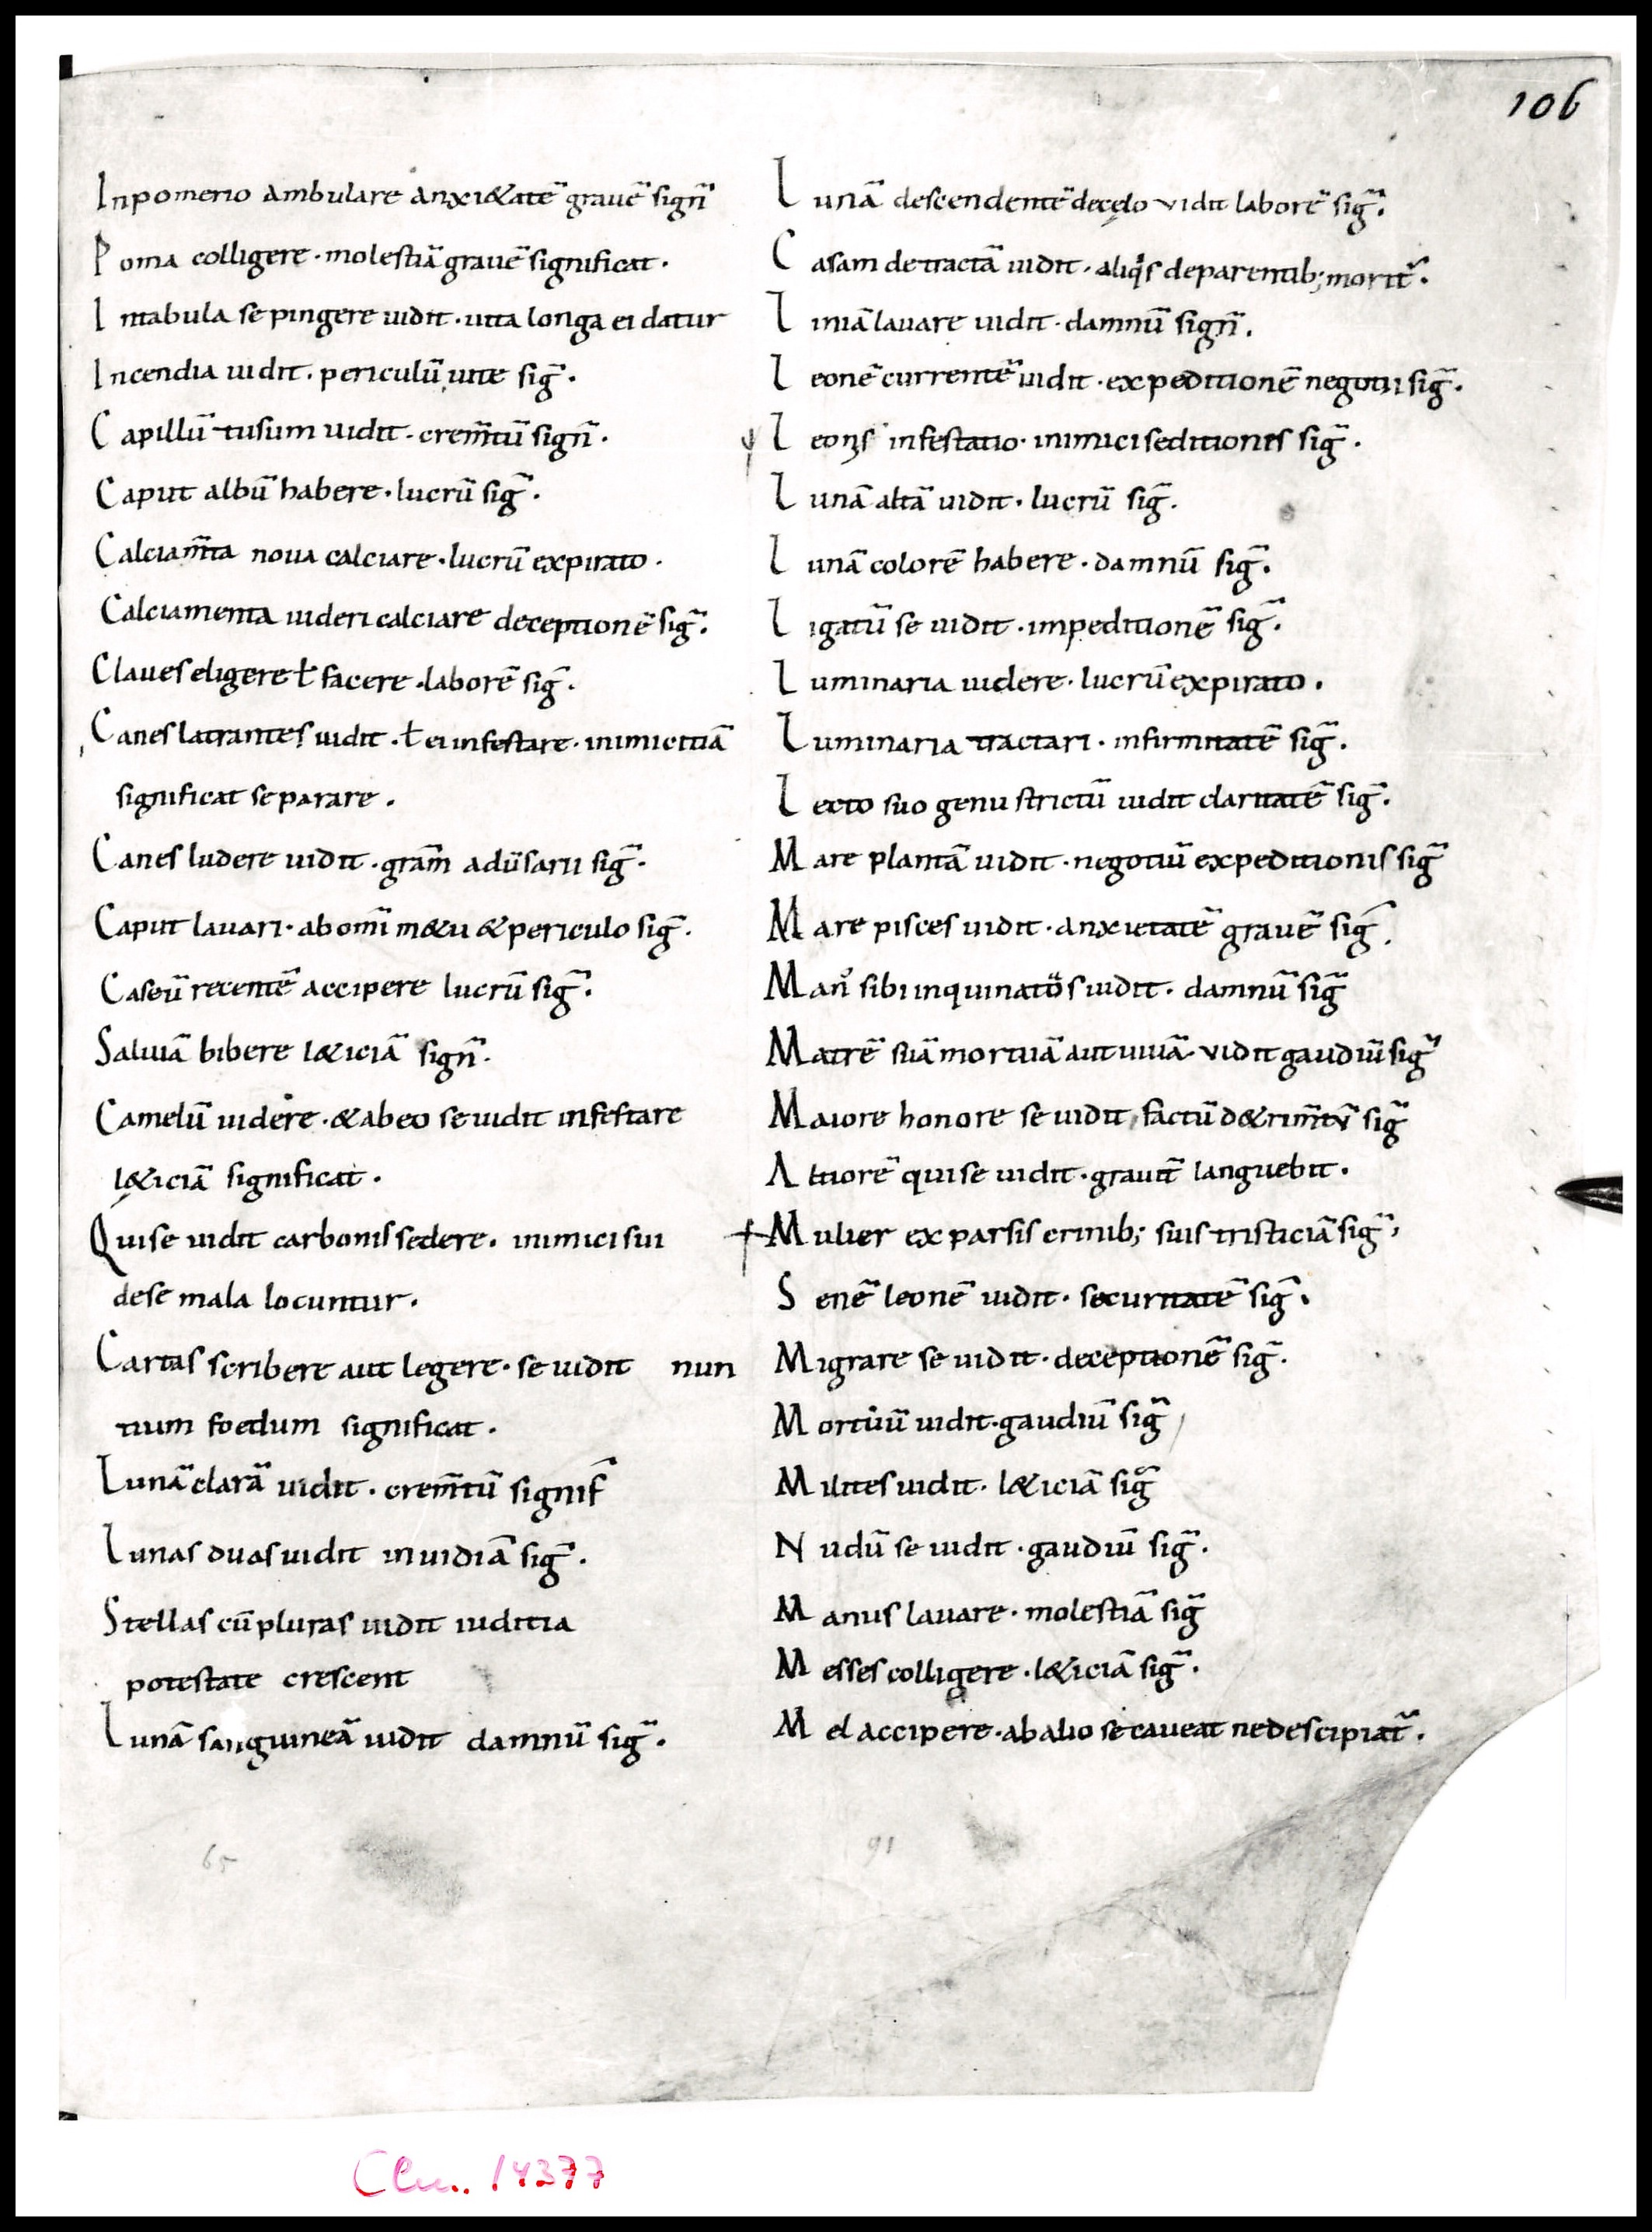 106
Inpomerio ambulare anxi&atē grauē sign̄
Poma colligere · molestiā grauē significat.
Intabula se pingere uidit · uita longa ei datur
Incendia uidit. periculū uitę siḡ.
Capillū tusum uidit · crem̄tū sign̄.
Caput albū habere · lucrū siḡ.
Calciam̄ta noua calciare · lucrū expirato.
Calciamenta uideri calciare deceptionē siḡ.
Claues eligere ł facere · laborē siḡ.
Canes latrantes uidit · ł ei infestare · inimicitiā
significat separare.
Canes ludere uidit · gram̄ aduīsarii siḡ.
Caput lauari · ab omī m&u & periculo siḡ.
Caseū recentē accipere lucrū siḡ.
Saluiā bibere l&iciā sign̄.
Camelū uidere · & abeo se uidit infestare
l&iciā significat.
Qui se uidit carbonis sedere. inimici sui
dese mala locuntur.
Cartas scribere aut legere · se uidit nun
tium foedum significat.
Lunā clarā uidit · crem̄tū signif̄
Lunas duas uidit inuidiā siḡ.
Stellas cū pluras uidit iuditia
potestate crescent
Lunā sanguineā uidit damnū siḡ.
65
Lunā descendentē decęlo vidit laborē siḡ.
Casam detractā uidit · aliq̇s deparentib; morit̄.
Liniā lauare uidit · damnū sign̄.
Leonē currentē uidit · expeditionē negotii siḡ.
infestatio · inimici seditionis siḡ.
Lunā altā uidit · lucrū siḡ.
Lunā colorē habere · damnū siḡ.
Ligatū se uidit · impeditionē siḡ.
Luminaria uidere · lucrū expirato.
Luminaria tractari · infirmitatē siḡ.
Lecto suo genu strictū uidit claritatē siḡ.
Mare plantā uidit · negotiū expeditionis siḡ
Mare pisces uidit · anxietatē grauē siḡ.
sibi inquinatos uidit · damnū siḡ
Matrē suā mortuā aut uiuā · vidit gaudiū siḡ
Maiore honore se uidit factū d&rim̄tū siḡ
Altiorē qui se uidit · grauit̄ languebit.
Mulier exparsis crinib; suis tristiciā siḡ;
Senē leonē uidit · securitatē siḡ.
Migrare se uidit · deceptionē siḡ.
Mortuū uidit · gaudiū siḡ
Milites uidit · l&iciā siḡ
Nudū se uidit · gaudiū siḡ.
Manus lauare · molestiā siḡ
Messes colligere · l&iciā siḡ.
Mel accipere · ab alio se caueat nedescipiat̄.
91
Clm. 14377